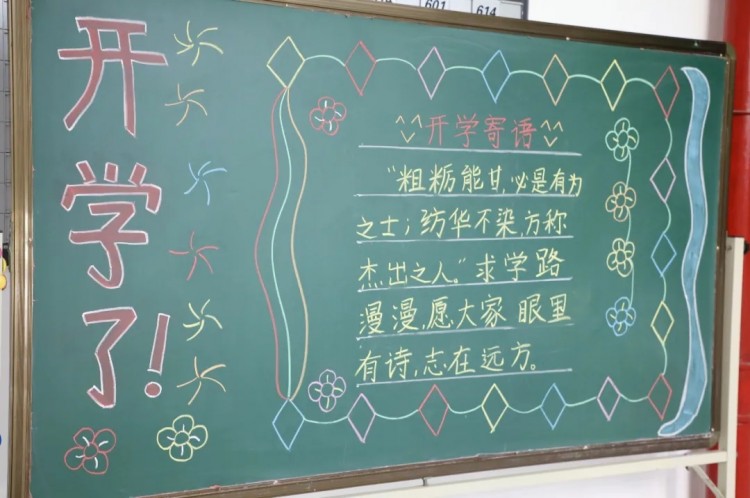 601 614
开学了!
开学寄语
“粗粝能甘,必是有为
之士;纺华不染,方称
杰出之人。”求学路
漫漫,愿大家眼里
有诗,志在远方。